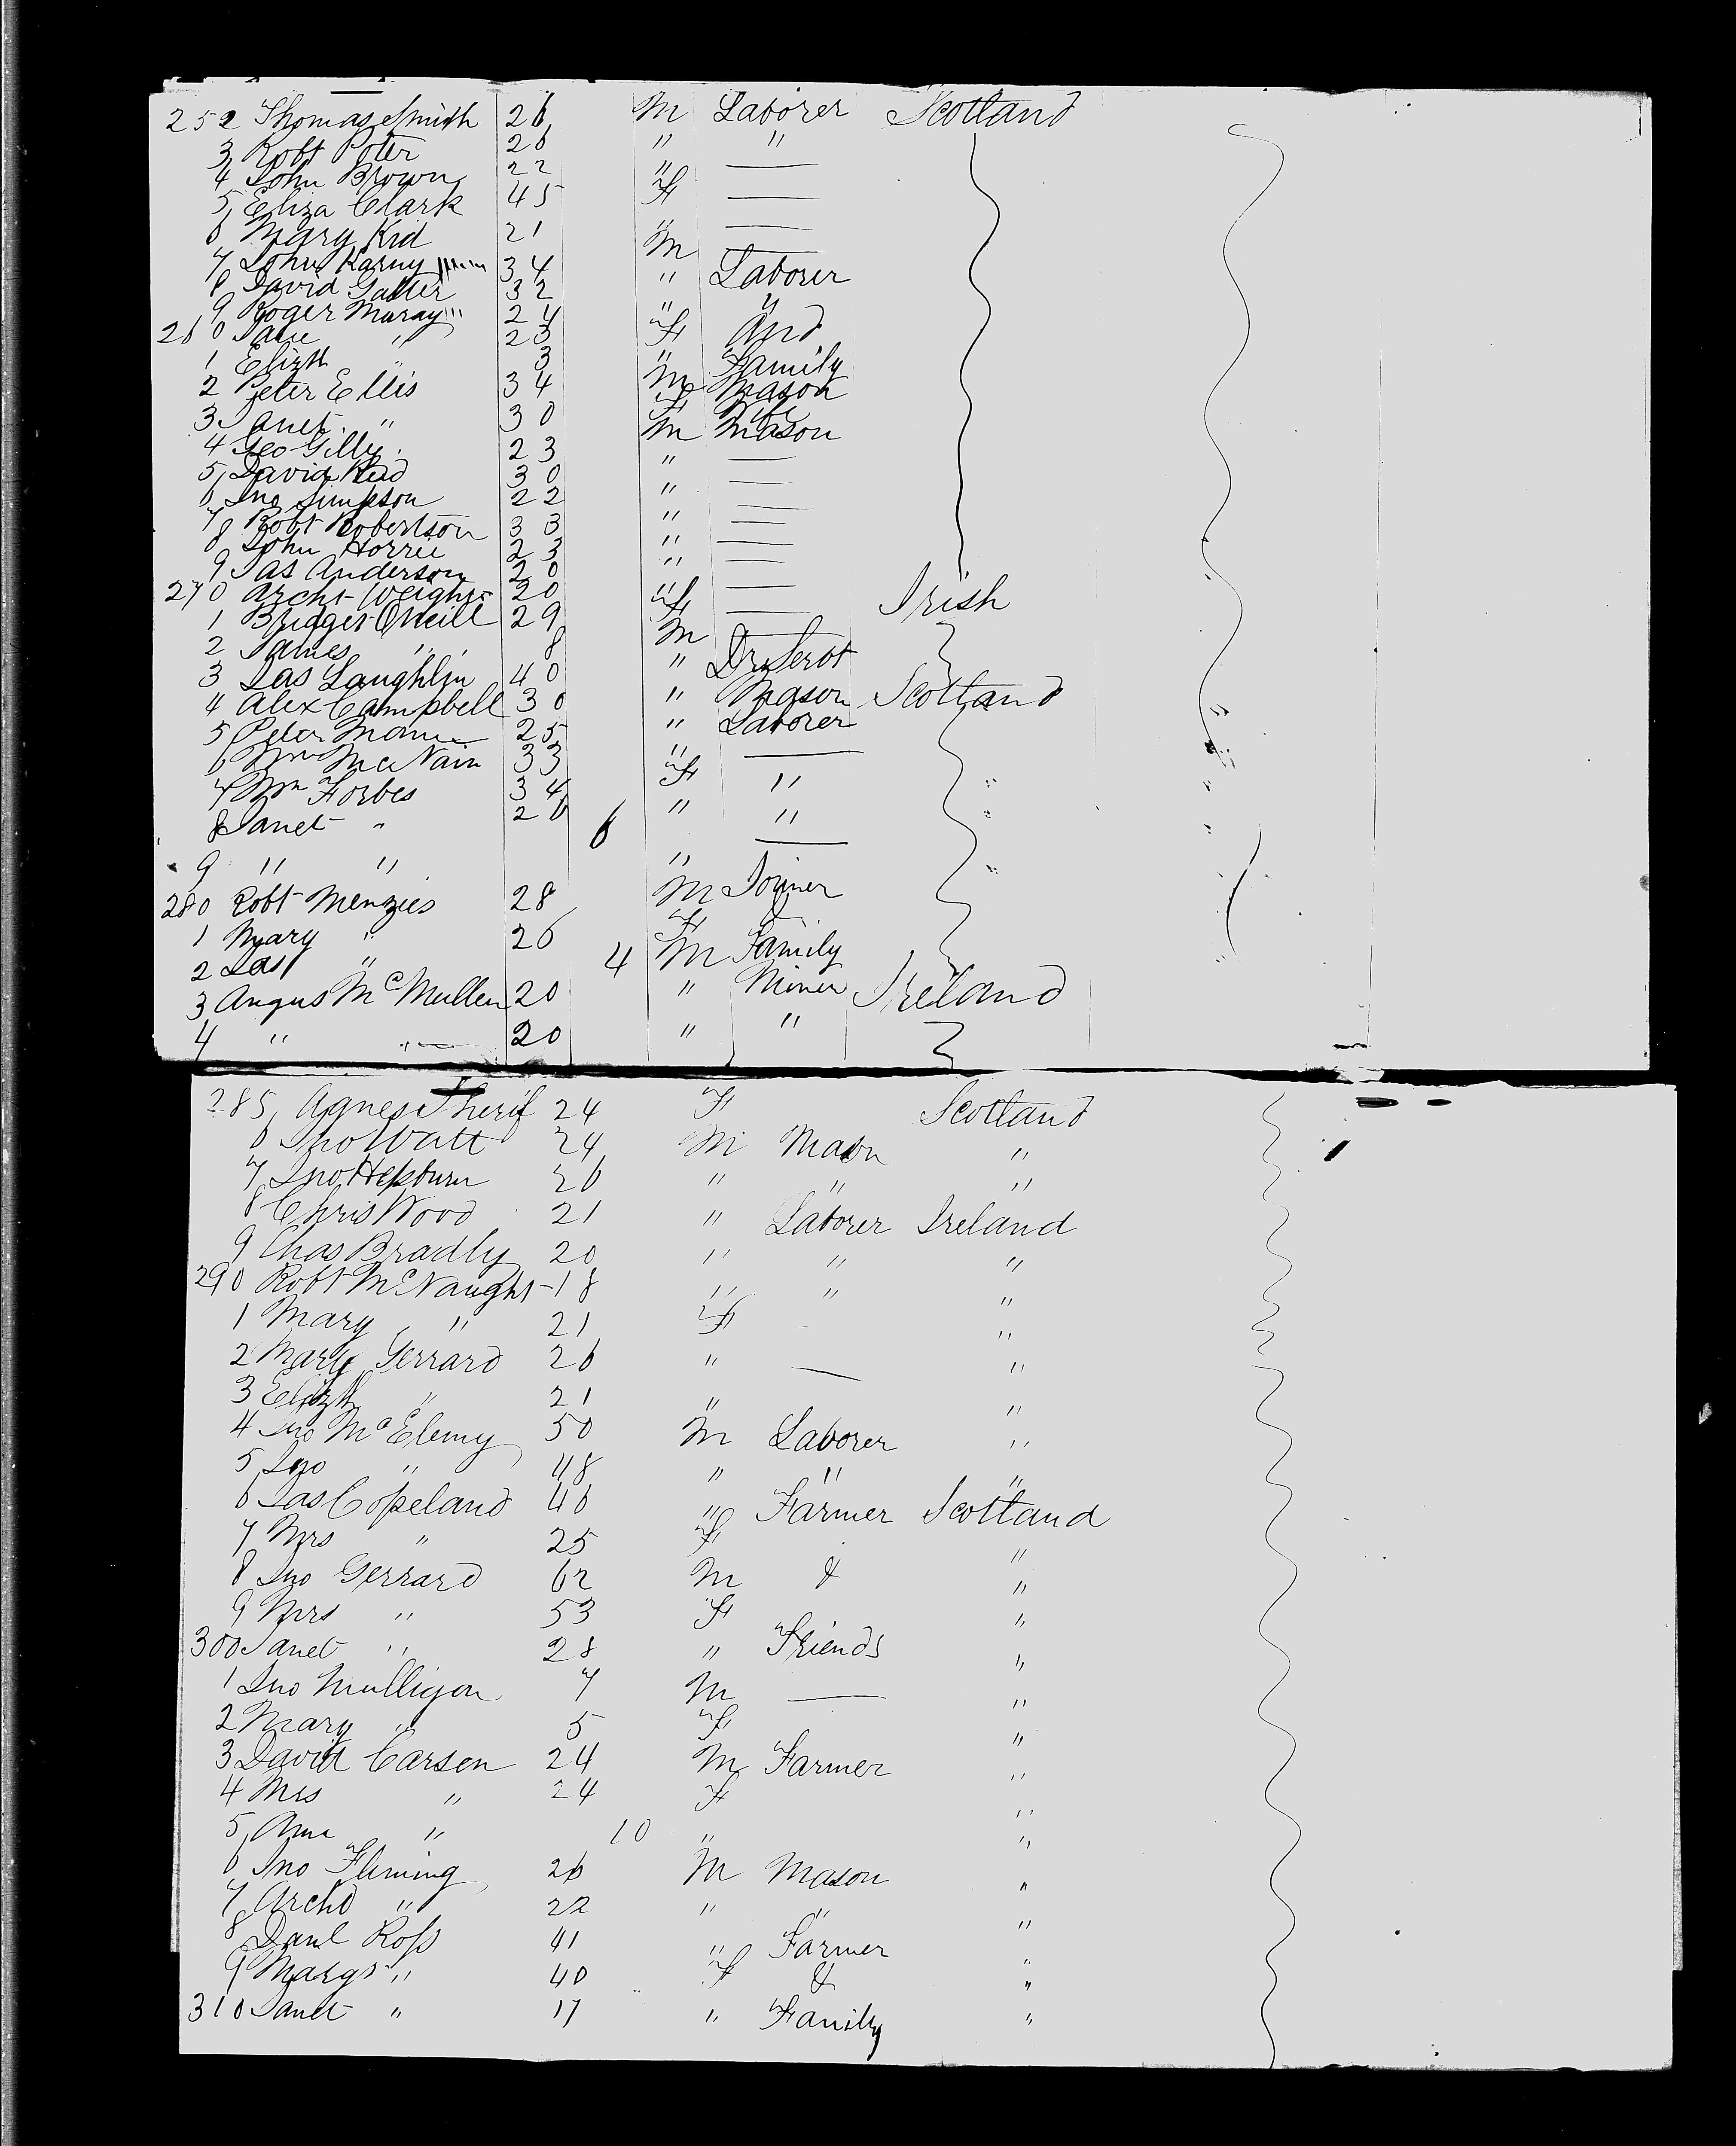 252 Thomas Smith 26 M Laborer Scotland
3 Robt Poter 26 " "
4 John Brown 22 " —
5 Eliza Clark 45 F —
6 Mary Kid 21 " —
7 John Karny 34 M —
8 David Galter 32 " Laborer
9 Roger Muray 24 " "
260 Jane " 23 F And
1 Elizth " 3 " Family
2 Peter Ellis 34 M Mason
3 Janet " 30 F Wife
4 Geo Gilly 23 M Mason
5 David Reid 30 " —
6 Jno Simpson 22 " —
7 Robt Robertson 33 " —
8 John Horrie 23 " —
9 Jas Anderson 20 " —
270 Archt Weight 20 " —
1 Bridget O'Neill 29 F — Irish
2 James " 8 M —
3 Jas Laughlin 40 "
4 Alex Campbell 30 " Mason Scotland
5 Peter Mann 25 " Laborer
6 Wm McNair 33 " —
7 Wm Forbes 34 " "
8 Janet " 26 F "
9 " " 6 " —
280 Robt Menzies 28 M Joiner
1 Mary " 26 F &
2 Jas " 4 M Family
3 Angus McMullen 20 " Miner Ireland
4 " " 20 " "
285 Agnes Sherif 24 F Scotland
6 Jno Watt 24 M Mason "
7 Jno Hepburn 26 " " "
8 Chris Wood 21 " Laborer Ireland
9 Chas Bradly 20 " " "
290 Robt McNaught 18 " " "
1 Mary " 21 F "
2 Mary Gerrard 26 " — "
3 Elizth " 21 " "
4 Jno McElemy 50 M Laborer "
5 Jno " 48 " " "
6 Jas Copeland 46 " Farmer Scotland
7 Mrs " 25 F "
8 Jno Gerrard 62 M & "
9 Mrs " 53 F "
300 Janet " 28 " Friends "
1 Jno Mulligan 7 M — "
2 Mary " 5 F "
3 David Carsen 24 M Farmer "
4 Mrs " 24 F "
5 Ann " 10 " "
6 Jno Fleming 26 M Mason "
7 Archd " 22 " " "
8 Danl Ross 41 " Farmer "
9 Margt " 40 F & "
310 Janet " 17 " Family "